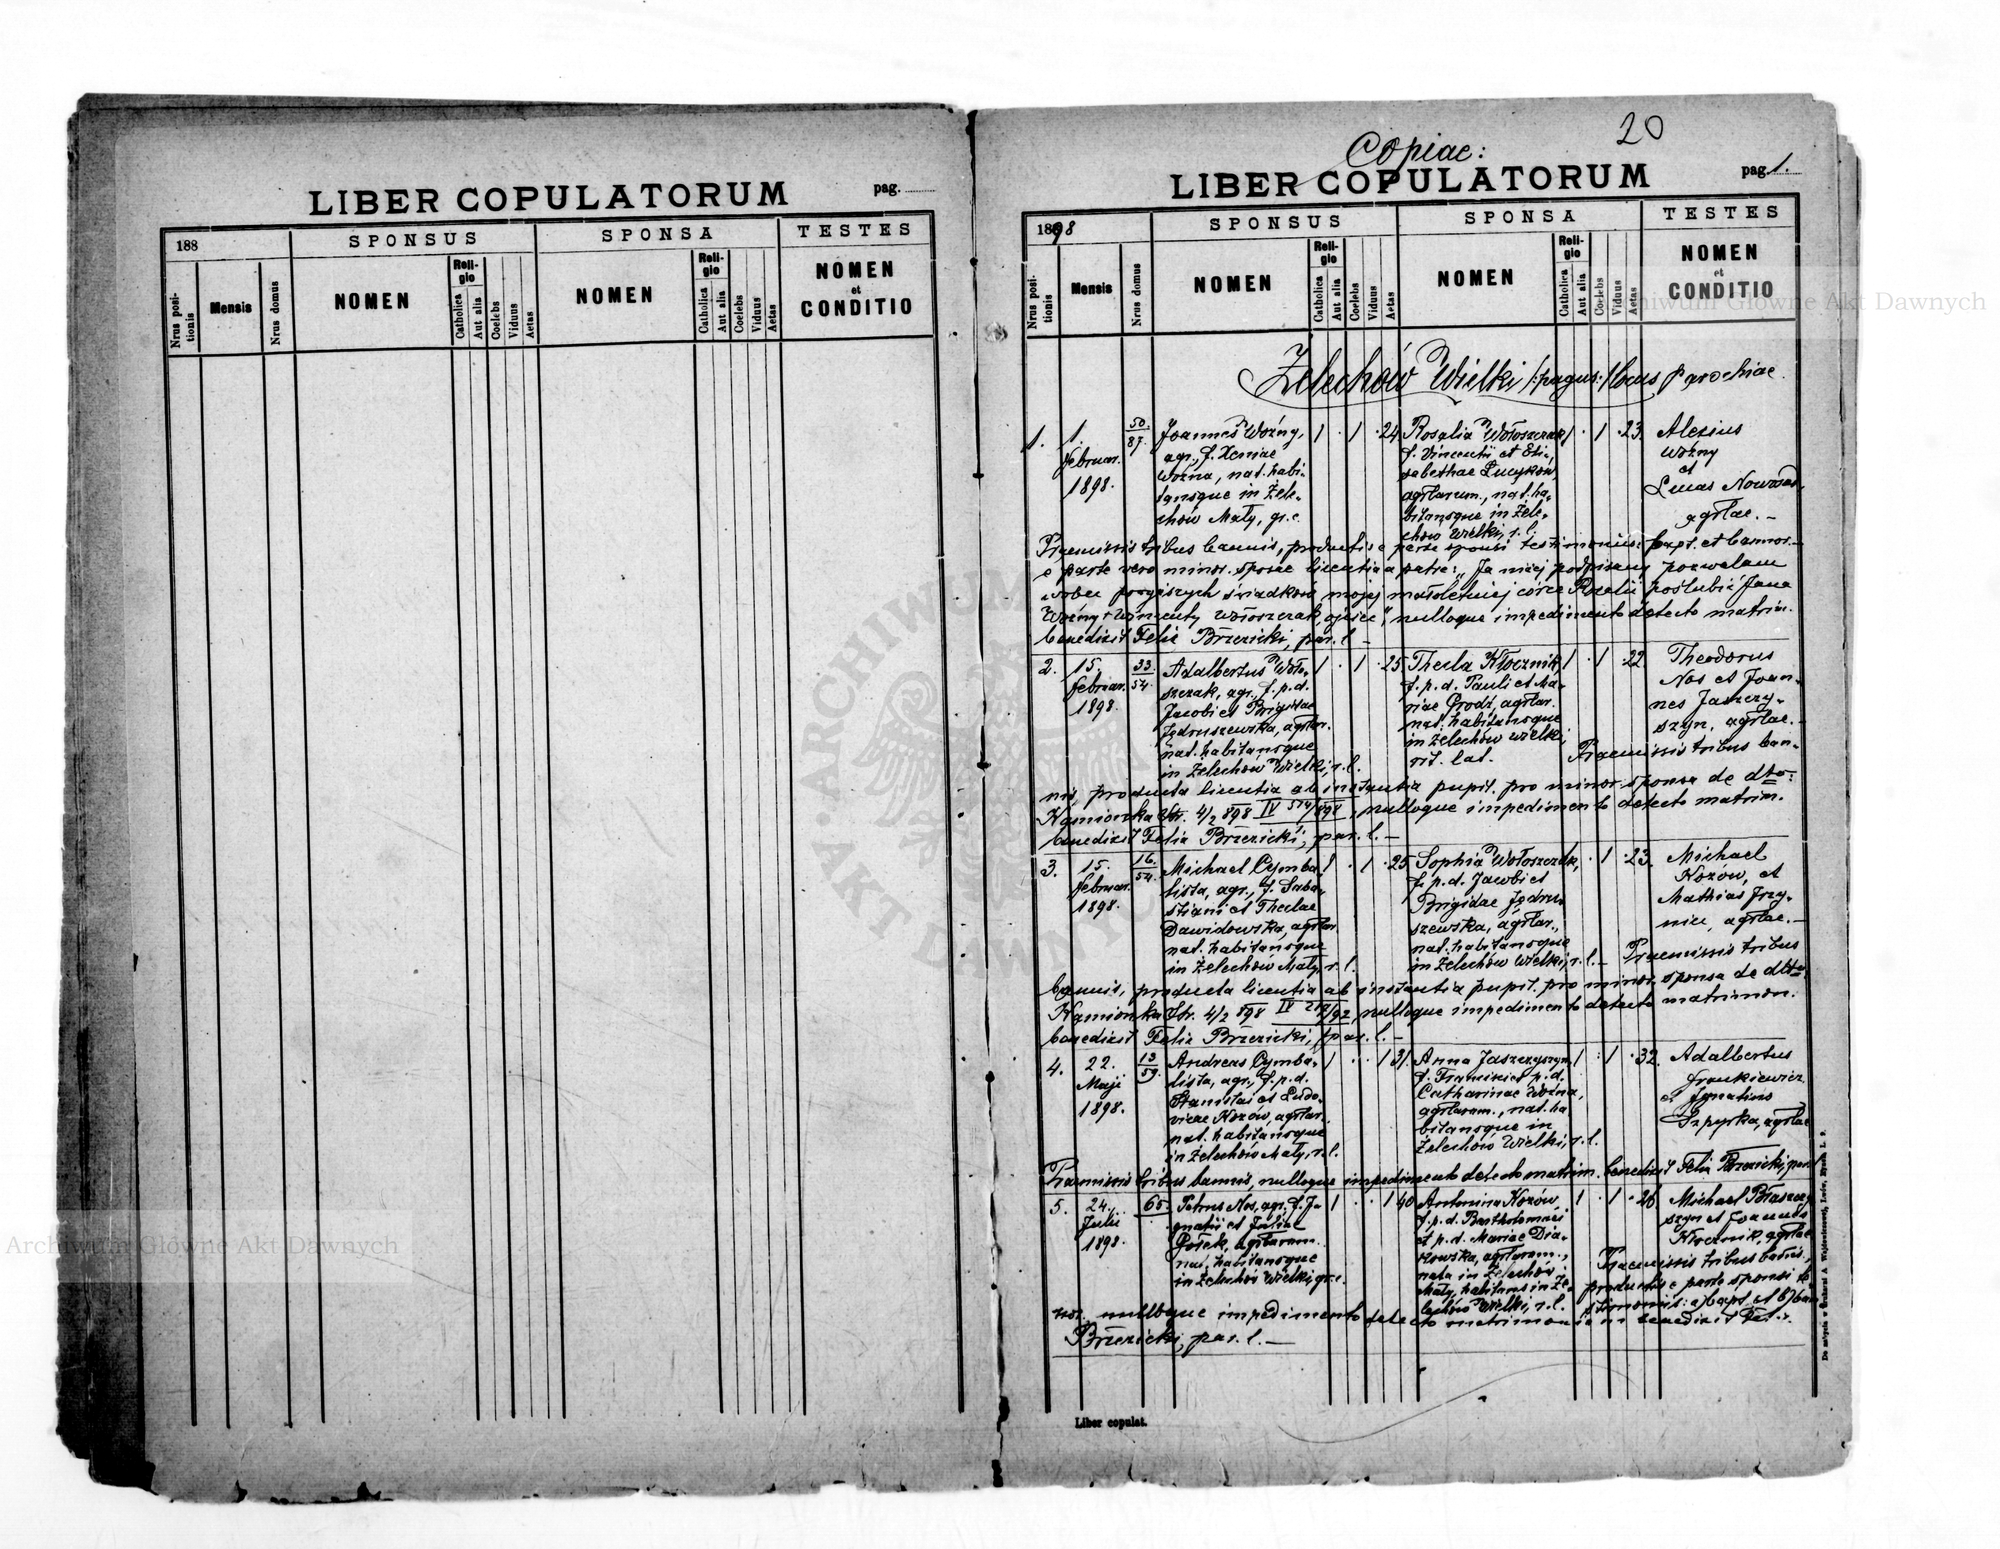 LIBER COPULATORUM
pag.
188
SPONSUS
SPONSA
TESTES
Nrus positionis
Mensis
Nrus domus
NOMEN
Religio
Catholica
Aut alia
Coelebs
Viduus
Aetas
NOMEN
Religio
Catholica
Aut alia
Coelebs
Viduus
Aetas
NOMEN
et
CONDITIO
20
Copiae:
LIBER COPULATORUM
pag. 1.
1898
SPONSUS
SPONSA
TESTES
Nrus positionis
Mensis
Nrus domus
NOMEN
Religio
Catholica
Aut alia
Coelebs
Viduus
Aetas
NOMEN
Religio
Catholica
Aut alia
Coelebs
Viduus
Aetas
NOMEN
et
CONDITIO
Żelechów Wielki /:pagus:/ locus parochiae
1.
1.
Februar.
1898.
50.
87.
Joannes Woźny,
agr., f. Xeniae
Woźna, nat. habi-
tansque in Żele-
chów Mały, gr. c.
1 . 1 . 24
Rosalia Wołoszczak
f. Vincentii et Eli-
sabethae Lucyków,
agrlarum., nat. ha-
bitansque in Żele-
chów Wielki, r. l.
1 . 1 . 23.
Alexius
Woźny
et
Lucas Nowosad,
agrlae. -
Praemissis tribus bannis, productis e parte sponsi testimoniis: bapt. et bannor.-
e parte vero minor. sponsae licentia a patre: "Ja niżej podpisany pozwalam
wobec powyższych świadków mojej małoletniej córce Rozalii poślubić Jana
Woźny + Wincenty Wołoszczak, ojciec", nulloque impedimento detecto matrim.
benedixit Felix Brzezicki, par. l. -
2.
15.
Februar.
1898.
33.
54.
Adalbertus Woło-
szczak, agr., f. p. d.
Jacobi et Brigidae
Jędruszewska, agrlar.
nat. habitansque
in Żelechów Wielki, r. l.
1 . 1 . 25
Thecla Kłocznik,
f. p. d. Pauli et Ma-
riae Grodź, agrlar.
nat. habitansque
in Żelechów Wielki,
rit. lat.
1 . 1 . 22.
Theodorus
Nos et Joan-
nes Jaszczy-
szyn, agrlae. -
Praemissis tribus ban-
nis, producta licentia ab instantia pupil. pro minor. sponsa de dtto:
Kamionka Str. 4/2 898 IV 514/898, nulloque impedimento detecto matrim.
benedixit Felix Brzezicki, par. l. -
3.
15.
Februar.
1898.
16.
54.
Michael Cymba-
lista, agr., f. Seba-
stiani et Theclae
Dawidowska, agrlar.
nat. habitansque
in Żelechów Mały, r. l.
1 . 1 . 25
Sophia Wołoszczak,
f. p. d. Jacobi et
Brigidae Jędru-
szewska, agrlar.,
nat. habitansque
in Żelechów Wielki, r. l. -
. 1 . 23.
Michael
Kozow, et
Mathias
agrlae. -
Praemissis tribus
bannis, producta licentia ab instantia pupil. pro minor. sponsa de dtto:
Kamionka Str. 4/2 898 IV /92, nulloque impedimento detecto matrimon.
benedixit Felix Brzezicki, par. l. -
4.
22.
Maji
1898.
13
59.
Andreas Cymba-
lista, agr., f. p. d.
Stanislai et Ludo-
vicae Kozów, agrlar.
nat. habitansque
in Żelechów Mały, r. l.
1 . . 1 31.
Anna Jaszczyszyn,
f. Francisci et p. d.
Catharinae Woźna,
agrlarum., nat. ha
bitansque in
Żelechów Wielki, r. l.
1 . 1 . 32.
Adalbertus
Frankiewicz
et Ignatius
Szpyrka, agrlae
Praemissis tribus bannis, nulloque impedimento detecto matrim. benedixit Felix Brzezicki, par. l.
5.
24.
Julii
1898.
65.
Petrus Nos, agr. f. Ig-
natii et Juliae
agrlarum.
nat. habitansque
in Żelechów Wielki, gr. c.
1 . . 1 40
Antonina Kozów
f. p. d. Bartholomaei
et p. d. Mariae Dia-
kowska, agrlarum.,
nata in Żelechów
Mały, habitans in Że-
lechów Wielki, r. l.
1 . 1 . 26.
Michael Błaszczy
szyn et Joannes
Kłocznik, agrlae
Praemissis tribus bannis,
productis e parte sponsi te-
stimoniis: a) bapt. et b) ban
nor. nulloque impedimento detecto matrimonium benedixit Fel.
Brzezicki, par. l. -
Liber copulat.
Archiwum Główne Akt Dawnych
Archiwum Główne Akt Dawnych
ARCHIWUM
AKT DAWNYCH